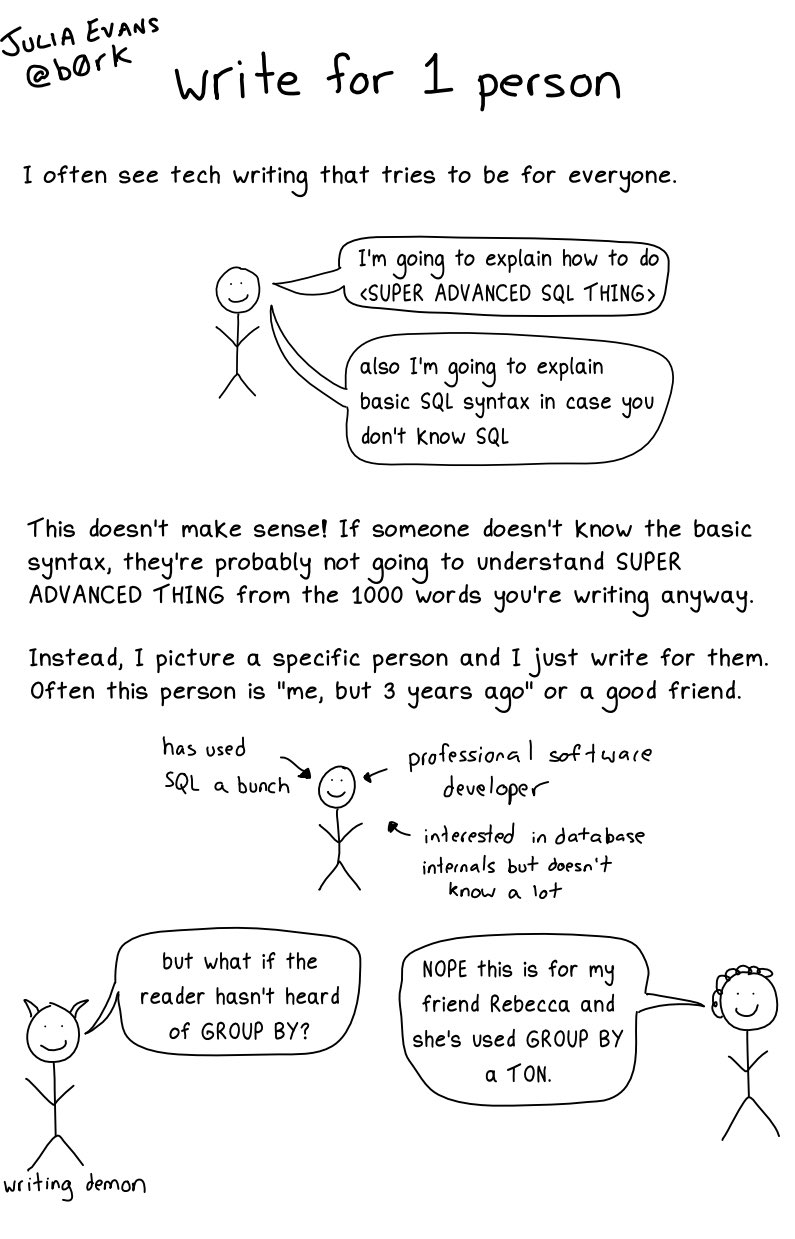 JULIA EVANS
@b0rk
write for 1 person
I often see tech writing that tries to be for everyone.
I'm going to explain how to do
<SUPER ADVANCED SQL THING>
also I'm going to explain
basic SQL syntax in case you
don't know SQL
This doesn't make sense! If someone doesn't know the basic
syntax, they're probably not going to understand SUPER
ADVANCED THING from the 1000 words you're writing anyway.
Instead, I picture a specific person and I just write for them.
Often this person is "me, but 3 years ago" or a good friend.
has used
SQL a bunch
professional software
developer
interested in database
internals but doesn't
know a lot
but what if the
reader hasn't heard
of GROUP BY?
NOPE this is for my
friend Rebecca and
she's used GROUP BY
a TON.
writing demon